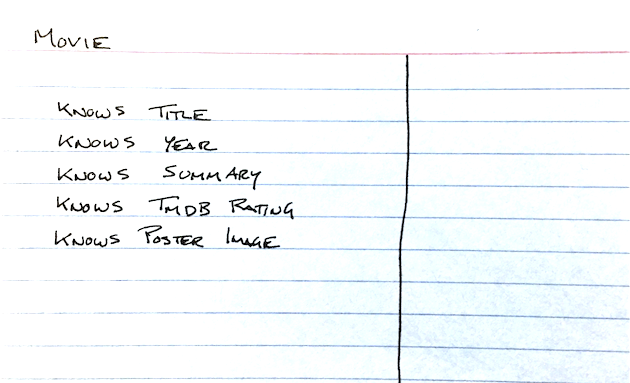 MOVIE
KNOWS TITLE
KNOWS YEAR
KNOWS SUMMARY
KNOWS TMDB RATING
KNOWS POSTER IMAGE